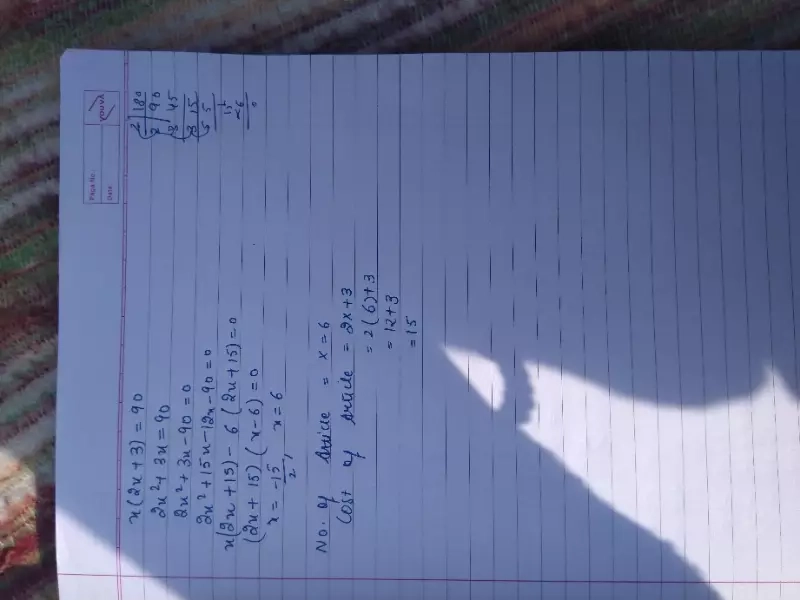 Page No.
Date
YOUVA
x(2x+3) = 90
2x² + 3x = 90
2x² + 3x - 90 = 0
2x² + 15x - 12x - 90 = 0
x(2x + 15) - 6 (2x + 15) = 0
(2x + 15) (x - 6) = 0
x = -15/2, x = 6
2 | 180
2 | 90
3 | 45
3 | 15
5 | 5
1
15
×6
0
No. of Article = x = 6
Cost of Article = 2x + 3
= 2(6) + 3
= 12 + 3
= 15